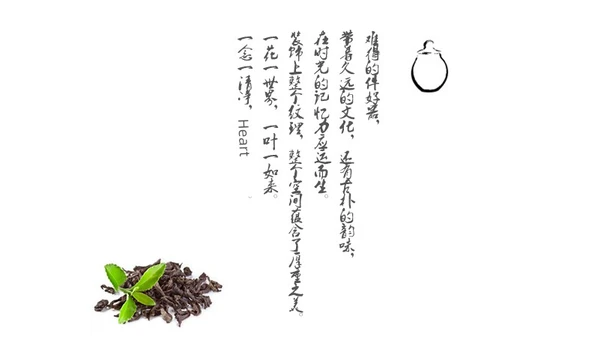 难得的伴好茗，
带着久远的文化，还有古朴的韵味，
在时光的记忆力应运而生。
装饰上整个纹理，整个空间蕴含了厚重之美。
一花一世界，一叶一如来。
一念一清净，Heart